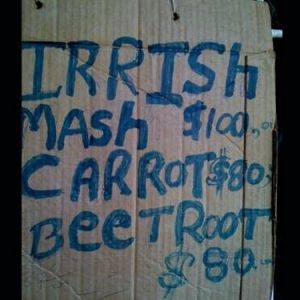 IRRISh
MASh $100.00
CARROT $80.-
BeeTROOT
$80.-